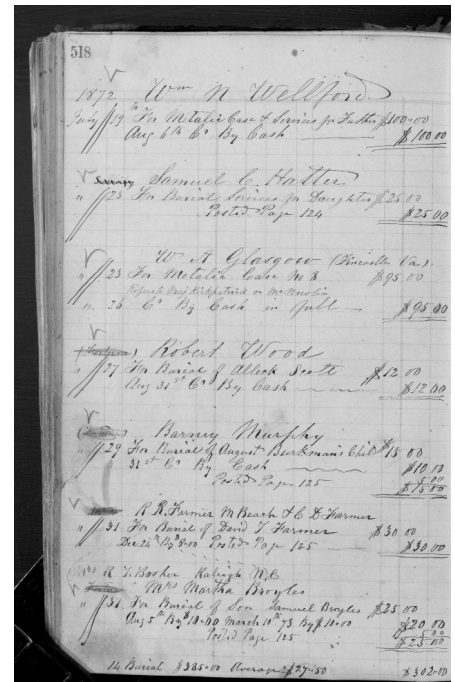 518
1872 Wm N Wellford
July 19th For Metalic Case & Services for Father $100.00
Aug 6th Cr By Cash $100.00
Samuel C Hatter
" 23 For Burial Services for Daughter $25.00
Posted Page 124 $25.00
W A Glasgow (Fincastle Va)
" 23 For Metalic Case No 3 $95.00
Maj Kirkpatrick or Mr
" 26 Cr By Cash in full $95.00
Robert Wood
" 27 For Burial of Alleck Scott $12 00
Aug 31st Cr By Cash $12.00
Barney Murphy
" 29 For Burial of August Burkman's Child $15 00
31st Cr By Cash $10.00
Posted Page 125 5.00
$15.00
R R. Farmer M Beach & C D Farmer
" 31 For Burial of David T Farmer $30 00
Dec 24th Posted Page 125 $30.00
Mrs R T. Booker Raleigh N.C
Mrs Martha Broyles
" 31 For Burial of Son Samuel Broyles $25 00
Aug 5th By $10.00 March 10th 73 By $10.00 $20 00
Posted Page 125 5.00
$25.00
14 Burial $385.00 Average $27.50 $302.00